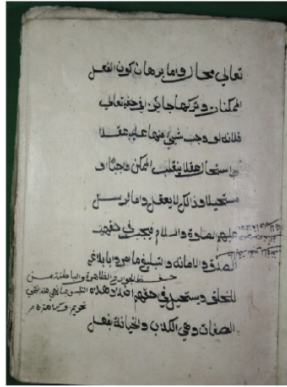 تعالى محال وأما برهان كون الفعل
الممكنات وتركها جائز في حقه تعالى
فلانه لو وجب شيئ منها عليه عقلا
او استحال عقلا لانقلب الممكن واجبا او
مستحيلا وذلك لا يعقل واما الرسل
عليهم الصلاة والسلام فيجب في حقهم
الصدق والامانة وتبليغ ما امروا بابلاغه
حفظ الجوارح الظاهرة والباطنة من
للخلق ويستحيل في حقهم اضداد هذه
تحريم وكراهة
الصفات وهي الكذب والخيانة بفعل